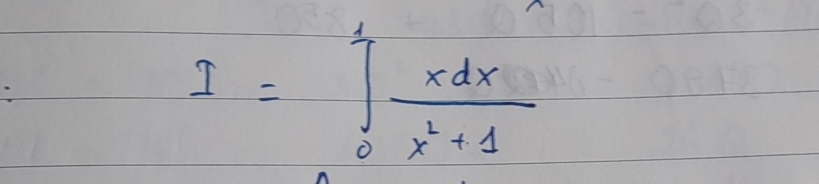 I = ∫₀¹ x dx / (x² + 1)